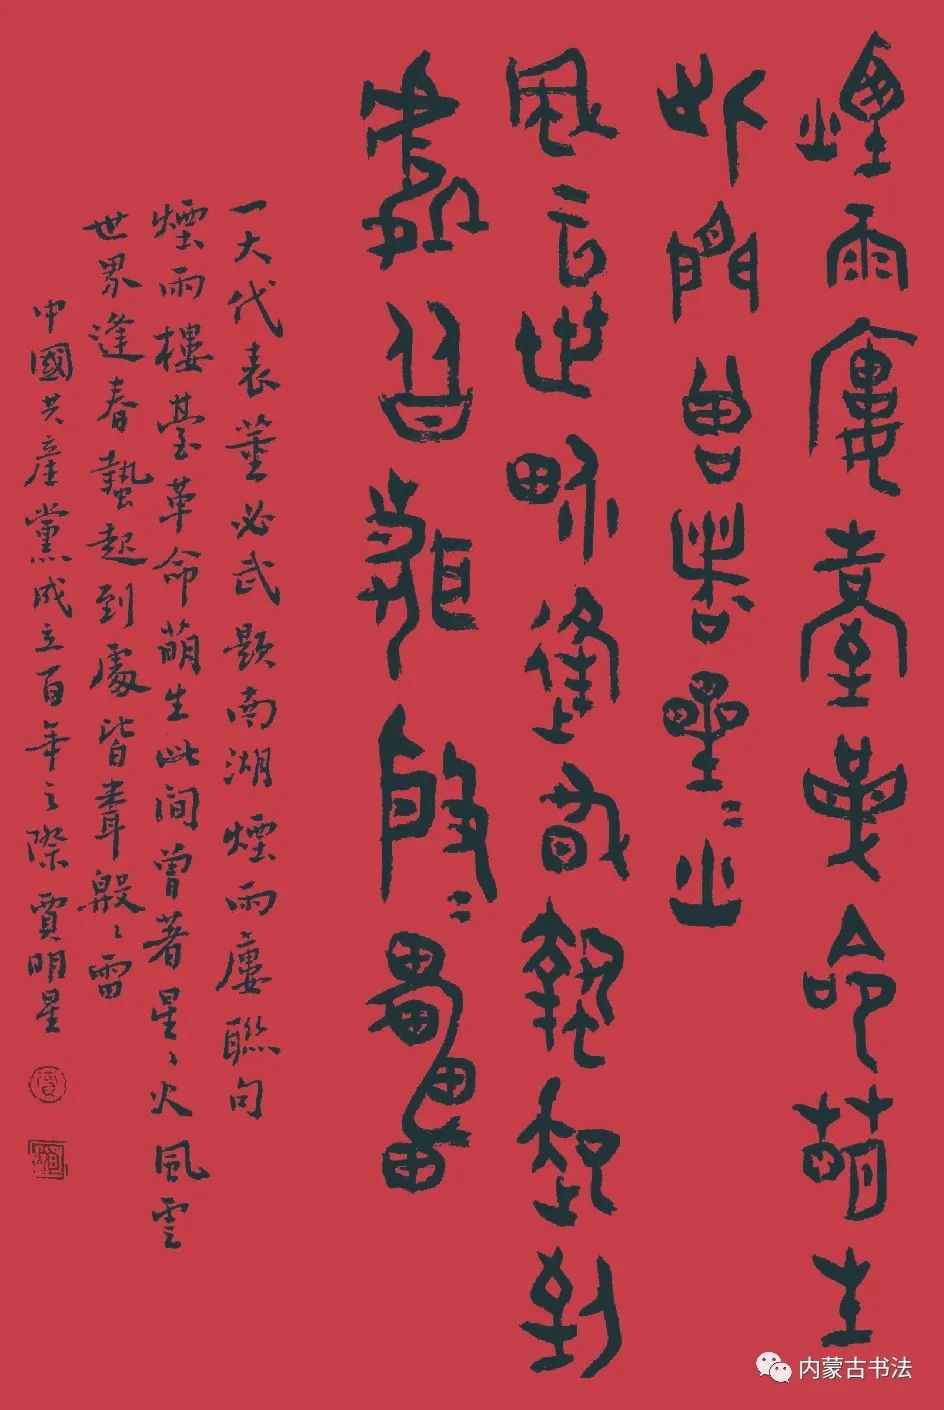 煙雨廔臺革命萌生
此間曾著星〻火
風云世界逢春蟄起到
處皆聞殷〻雷
一大代表董必武題南湖煙雨廔聯句
煙雨樓臺革命萌生此間曾著星〻火風雲
世界逢春蟄起到處皆聞殷〻雷
中國共產黨成立百年之際賈明星
内蒙古书法